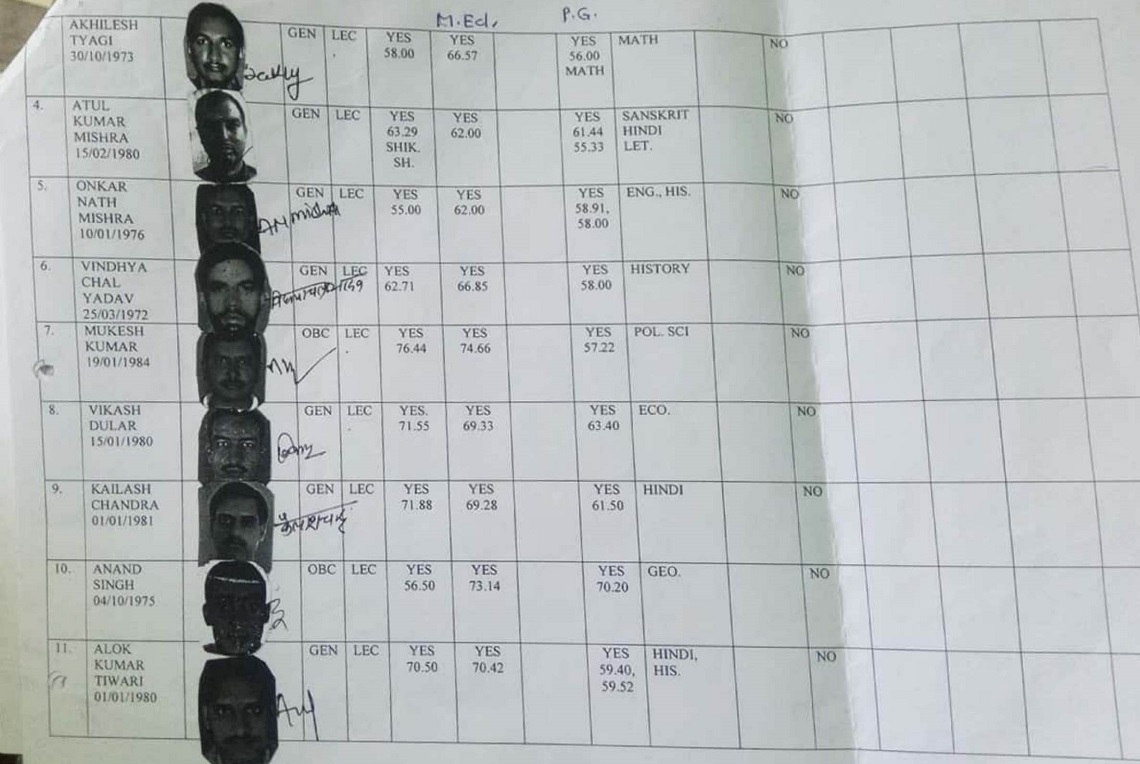 M.Ed, P.G.
AKHILESH TYAGI 30/10/1973 GEN LEC YES 58.00 YES 66.57 YES 56.00 MATH MATH NO
4. ATUL KUMAR MISHRA 15/02/1980 GEN LEC YES 63.29 SHIK. SH. YES 62.00 YES 61.44 55.33 SANSKRIT HINDI LET. NO
5. ONKAR NATH MISHRA 10/01/1976 GEN LEC YES 55.00 YES 62.00 YES 58.91, 58.00 ENG., HIS. NO
6. VINDHYA CHAL YADAV 25/03/1972 GEN LEC YES 62.71 YES 66.85 YES 58.00 HISTORY NO
7. MUKESH KUMAR 19/01/1984 OBC LEC YES 76.44 YES 74.66 YES 57.22 POL. SCI NO
8. VIKASH DULAR 15/01/1980 GEN LEC YES. 71.55 YES 69.33 YES 63.40 ECO. NO
9. KAILASH CHANDRA 01/01/1981 GEN LEC YES 71.88 YES 69.28 YES 61.50 HINDI NO
10. ANAND SINGH 04/10/1975 OBC LEC YES 56.50 YES 73.14 YES 70.20 GEO. NO
11. ALOK KUMAR TIWARI 01/01/1980 GEN LEC YES 70.50 YES 70.42 YES 59.40, 59.52 HINDI, HIS. NO